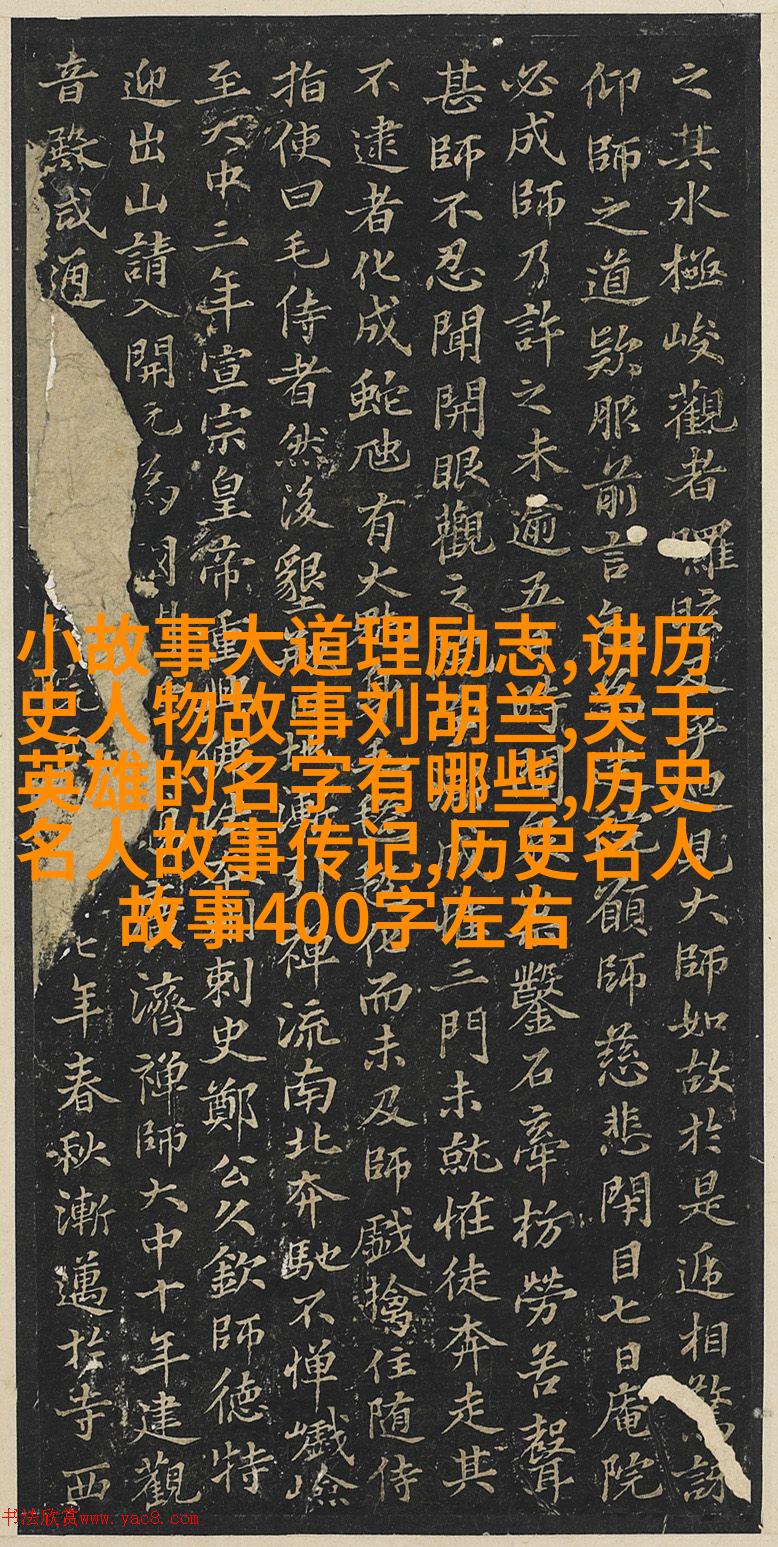 之其水極峻觀者乎過見大師如故於是遞相驚訝
仰師之道欵服前言願師慈悲閑目七日庵院
必成師乃許之未逾五鑿石牽枋勞苦聲
甚師不忍聞開眼觀之三門未就恠徒奔走其
不逮者化成蛇虺有大化而未及師戲擒住随侍
指使曰毛侍者然後墾禪流南北奔馳不憚巇嶮
至大中三年宣宗皇帝重佛刺史鄭公久欽師德特
迎出山請入開元為國濟禪師大中十年建觀
音殿咸通七年春秋漸邁於寺西
小故事大道理励志,讲历
史人物故事刘胡兰,关于
英雄的名字有哪些,历史
名人故事传记,历史名人
故事400字左右
书法欣赏www.yac8.com